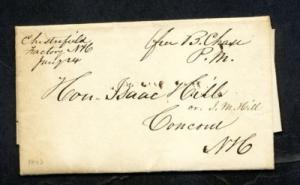 Chesterfield
Factory NH
June 24
free B. Chase
P.M.
Hon. Isaac Hill
or J. M. Hill
Concord
NH